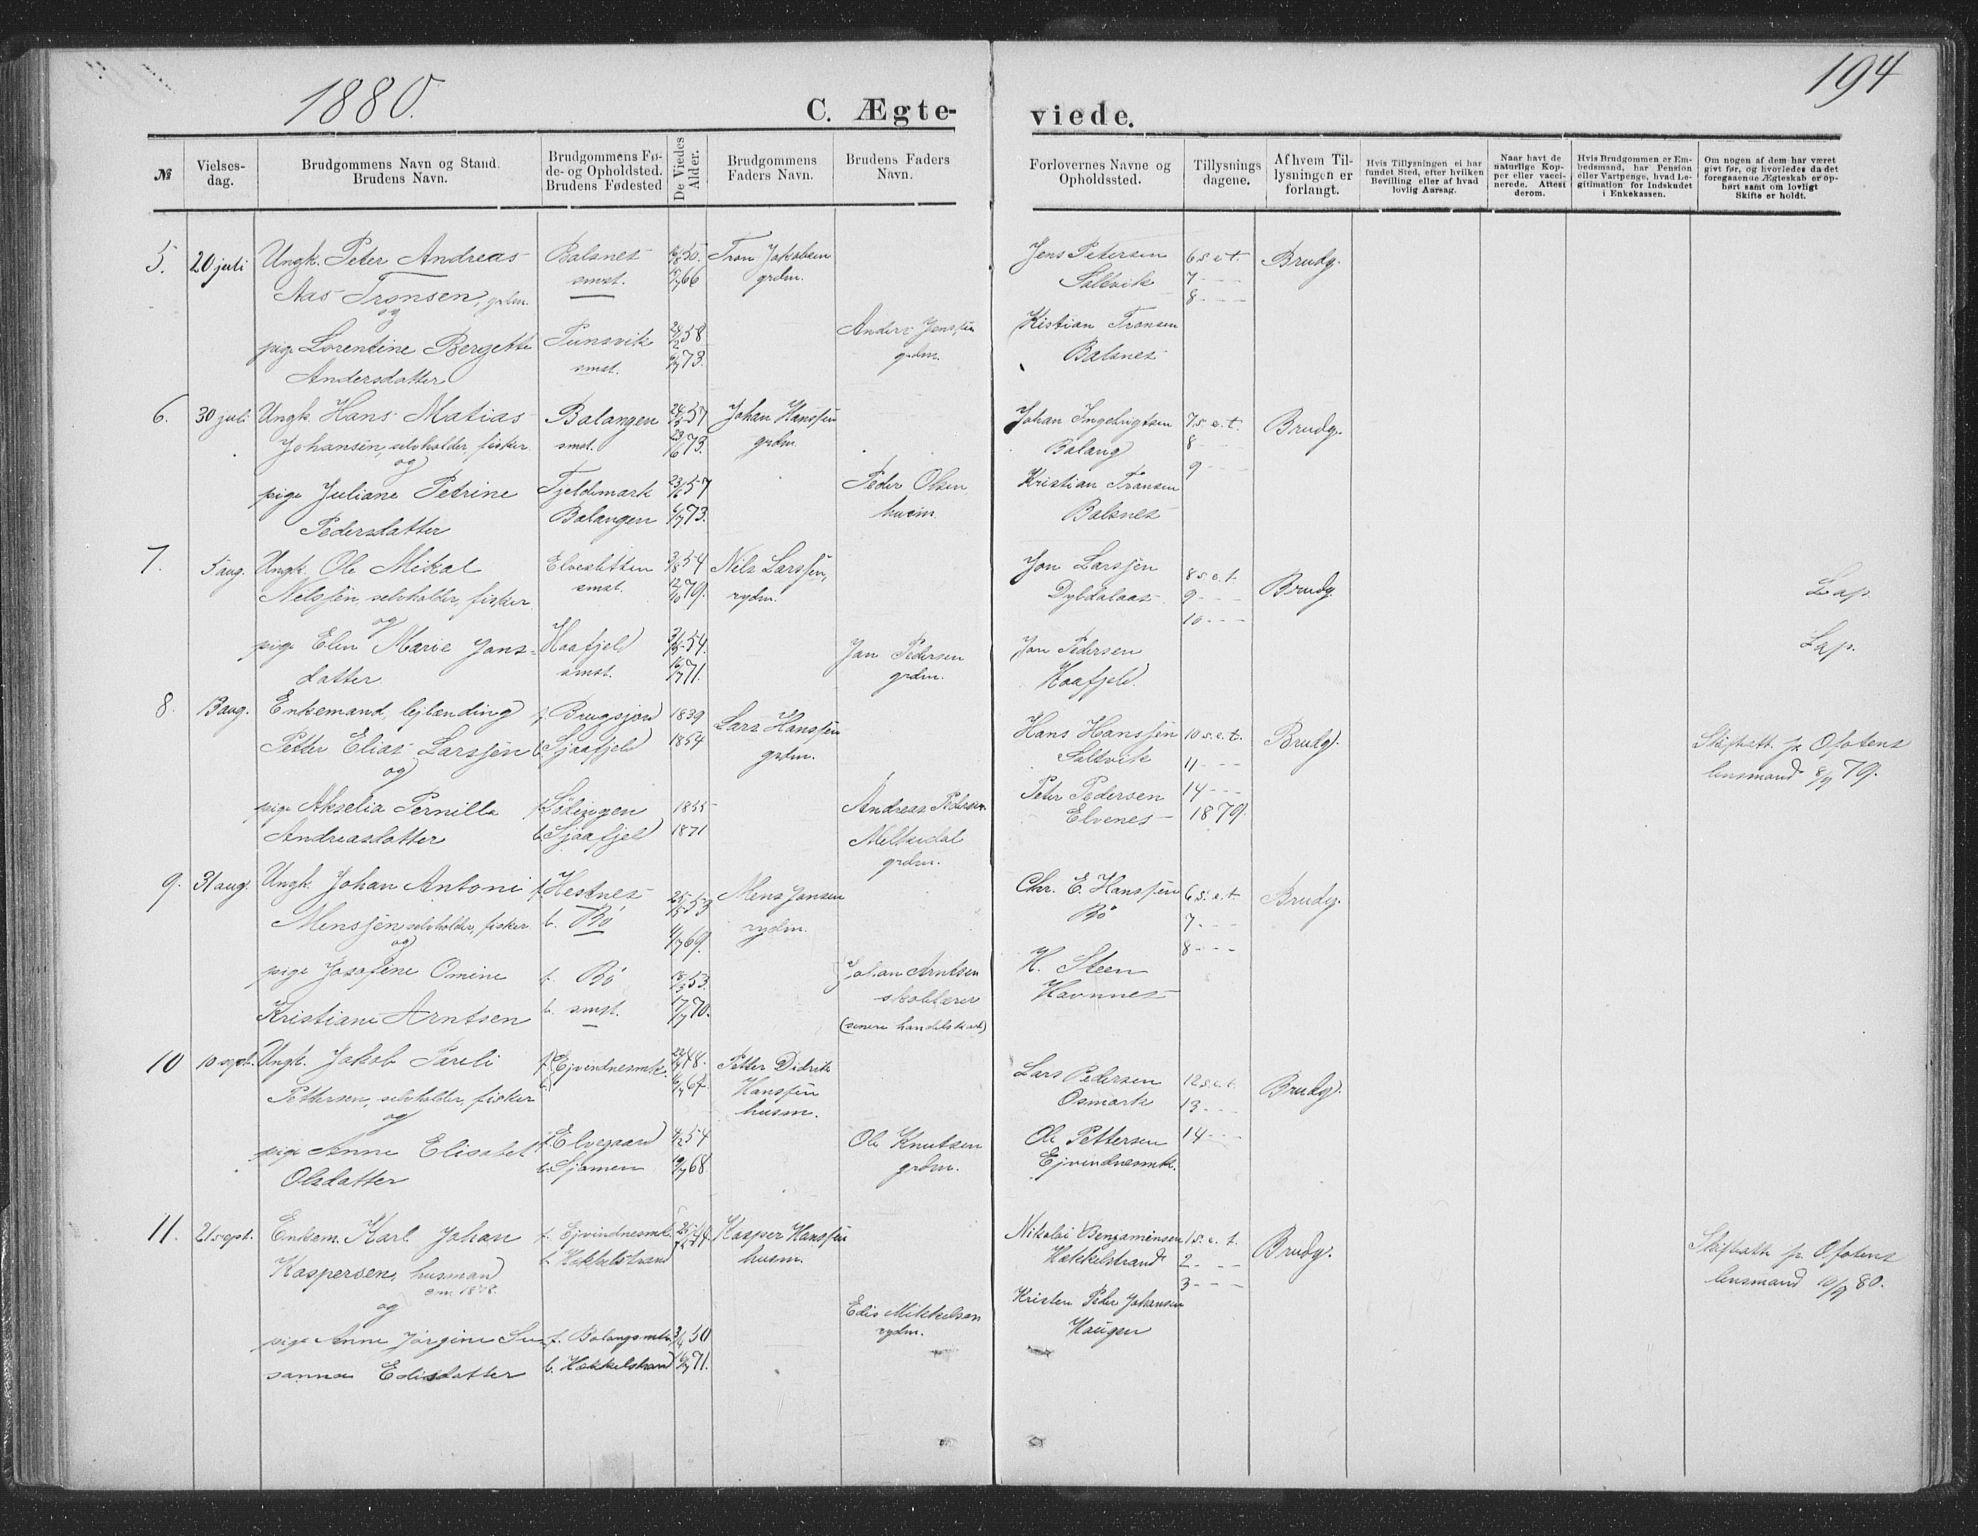 1880.
194
C. Ægte-
viede.
№
Vielses-
dag.
Brudgommens Navn og Stand.
Brudens Navn.
Brudgommens Fø-
de- og Opholdsted.
Brudens Fødested
De Viedes
Alder.
Brudgommens
Faders Navn.
Brudens Faders
Navn.
Forlovernes Navne og
Opholdssted.
Tillysnings
dagene.
Af hvem Til-
lysningen er
forlangt.
Hvis Tillysningen ei har
fundet Sted, efter hvilken
Bevilling eller af hvad
lovlig Aarsag.
Naar havt de
naturlige Kop-
per eller vacci-
nerede. Attest
derom.
Hvis Brudgommen er Em-
bedsmand, har Pension
eller Vartpenge, hvad Le-
gitimation for Indskudet
i Enkekassen.
Om nogen af dem har været
givt før, og hvorledes da det
foregaaende Ægteskab er op-
hørt samt om lovligt
Skifte er holdt.
5.
20 juli
Ungk. Peter Andreas
Aas Tronsen, grdm.
og
pige Lorentine Bergette
Andersdatter
Balsnes
smst.
Punsvik
smst.
Tron Jakobsen
grdm.
Anders Jenssen
grdm.
Jens Petersen
Salsvik
Kistian Tronsen
Balsnes
6 s. e. t.
7 - - -
8 - - -
Brudg.
6.
30 juli
Ungk. Hans Matias
Johansen, selvholder, fisker
og
pige Juliane Petrine
Pedersdatter
Balangen
smst.
Fjeldemark
Balangen
Johan Hanssen
grdm.
Peder Olsen
husm.
Johan Ingebrigtsen
Balang
Kristian Tronsen
Balsnes
7 s. e. t.
8 - - -
9 - - -
Brudg.
7.
5 aug.
Ungk. Ole Mikal
Nilssen, selvholder, fisker
og
pige Elen Marie Jons-
datter
Elveslitten
smst.
Haafjeld
smst.
Nils Larssen,
rydm.
Jon Pedersen
grdm.
Jon Larssen
Dybdalaas
Jon Pedersen
Haafjeld.
8 s. e. t.
9 - - -
10 - - -
Brudg.
Lap.
Lap.
8.
13 aug.
Enkemand, lejlænding
Petter Elias Larssen
og
pige Akselia Pernilla
Andreasdatter
f. Brugsjord
b. Sjaafjeld
f. Lødingen
b. Sjaafjeld
1839
1854
1855
1871
Lars Hanssen
grdm.
Andreas Pedersen
Melkedal
grdm.
Hans Hanssen
Salsvik
Peter Pedersen
Elvenes
10 s. e. t.
11 - - -
14 - - -
1879.
Brudg.
Skifteatt. fr. Ofotens
lensmand 8/9 79.
9.
31 aug.
Ungk. Johan Antoni
Menssen selvholder, fisker
og
pige Josefine Omine
Kristiane Arntsen
f. Hestnes
b. Bø
f. Bø
b. smst.
Mens Jonsen
rydm.
Johan Arntsen
skolelærer
(senere handelskarl)
Chr. E. Hanssen
Bø
H. Steen
Havnnes
6 s. e. t.
7 - - -
8 - - -
Brudg.
10
10 sept.
Ungk. Jakob Pareli
Pettersen, selvholder, fisker
og
pige Anne Elisabet
Olsdatter
f. Ejvindnesmk.
b.
f. Elvegaard
b. Sjomen
Petter Didrik
Hanssen
husm.
Ole Knutsen
grdm.
Lars Pedersen
Osmark
Ole Pettersen
Ejvindnesmk.
12 s. e. t.
13 - - -
14 - - -
Brudg.
11.
21 sept.
Enkem. Karl Johan
Kaspersen, husmand
og
pige Anne Jørgine Su-
sanna Edisdatter
f. Ejvindnesmk.
b. Hekkelstrand
f. Balangsmk.
b. Hekkelstrand
Kasper Hanssen
husm.
Edis Mikkelsen
rydm.
Nikolai Benjaminsen
Hekkelstrand
Kristen Peder Johansen
Haugen
1 s. e. t.
2 - - -
3 - - -
Brudg.
Skifteatt. fr. Ofotens
lensmand 10/9 80.